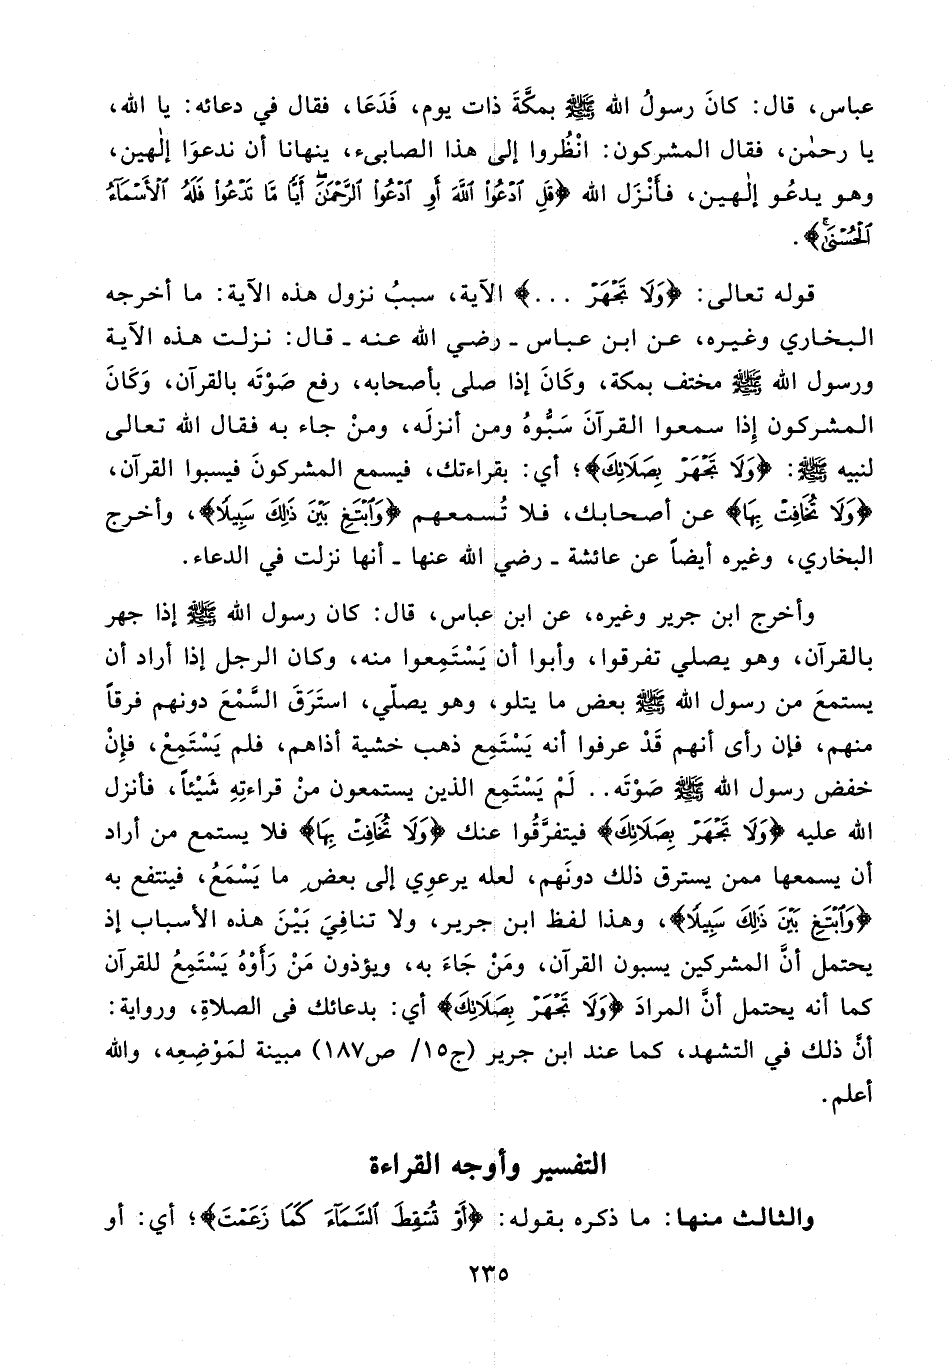 عباس، قال: كانَ رسولُ الله ﷺ بمكَّةَ ذات يوم، فَدَعَا، فقال في دعائه: يا الله،
يا رحمٰن، فقال المشركون: انْظُروا إلى هذا الصابىء، ينهانا أن ندعوَا إلٰهين،
وهو يدعُو إلٰهين، فأَنْزَل الله ﴿قُلِ ٱدْعُوا۟ ٱللَّهَ أَوِ ٱدْعُوا۟ ٱلرَّحْمَٰنَۖ أَيًّا مَّا تَدْعُوا۟ فَلَهُ ٱلْأَسْمَآءُ
ٱلْحُسْنَىٰۚ﴾.
قوله تعالى: ﴿وَلَا تَجْهَرْ ...﴾ الآية، سببُ نزول هذه الآية: ما أخرجه
البخاري وغيره، عن ابن عباس ـ رضي الله عنه ـ قال: نزلت هذه الآية
ورسول الله ﷺ مختف بمكة، وكانَ إذا صلى بأصحابه، رفع صَوْتَه بالقرآن، وَكَانَ
المشركون إِذا سمعوا القرآنَ سَبُّوهُ ومن أنزلَه، ومنْ جاء به فقال الله تعالى
لنبيه ﷺ: ﴿وَلَا تَجْهَرْ بِصَلَاتِكَ﴾؛ أي: بقراءتك، فيسمع المشركونَ فيسبوا القرآن،
﴿وَلَا تُخَافِتْ بِهَا﴾ عن أصحابك، فلا تُسمعهم ﴿وَٱبْتَغِ بَيْنَ ذَٰلِكَ سَبِيلًا﴾، وأخرج
البخاري، وغيره أيضاً عن عائشة ـ رضي الله عنها ـ أنها نزلت في الدعاء.
وأخرج ابن جرير وغيره، عن ابن عباس، قال: كان رسول الله ﷺ إذا جهر
بالقرآن، وهو يصلي تفرقوا، وأبوا أن يَسْتَمِعوا منه، وكان الرجل إذا أراد أن
يستمعَ من رسول الله ﷺ بعض ما يتلو، وهو يصلّي، استَرَقَ السَّمْعَ دونهم فرقاً
منهم، فإن رأى أنهم قَدْ عرفوا أنه يَسْتَمِع ذهب خشية أذاهم، فلم يَسْتَمِعْ، فإِنْ
خفض رسول الله ﷺ صَوْتَه.. لَمْ يَسْتَمِع الذين يستمعون منْ قراءتِهِ شَيْئاً، فأنزل
الله عليه ﴿وَلَا تَجْهَرْ بِصَلَاتِكَ﴾ فيتفرَّقُوا عنك ﴿وَلَا تُخَافِتْ بِهَا﴾ فلا يستمع من أراد
أن يسمعها ممن يسترق ذلك دونَهم، لعله يرعوِي إلى بعضِ ما يَسْمَعُ، فينتفع به
﴿وَٱبْتَغِ بَيْنَ ذَٰلِكَ سَبِيلًا﴾، وهذا لفظ ابن جرير، ولا تنافِيَ بَيْنَ هذه الأسباب إذ
يحتمل أنَّ المشركين يسبون القرآن، ومَنْ جَاءَ به، ويؤذون مَنْ رَأَوْهُ يَسْتَمِعُ للقرآن
كما أنه يحتمل أنَّ المرادَ ﴿وَلَا تَجْهَرْ بِصَلَاتِكَ﴾ أي: بدعائك فى الصلاةِ، ورواية:
أنَّ ذلك في التشهد، كما عند ابن جرير (ج١٥/ ص١٨٧) مبينة لمَوْضِعِه، والله
أعلم.
التفسير وأوجه القراءة
والثالث منها: ما ذكره بقوله: ﴿أَوْ تُسْقِطَ ٱلسَّمَآءَ كَمَا زَعَمْتَ﴾؛ أي: أو
٢٣٥